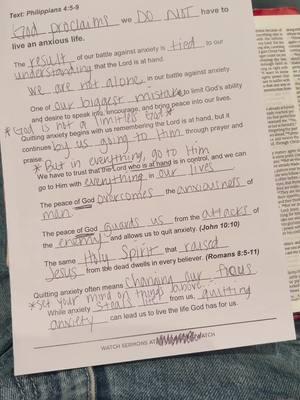 Text: Philippians 4:5-9
God proclaims we DO NOT have to
live an anxious life.
The result of our battle against anxiety is tied to our
understanding that the Lord is at hand.
we are not alone in our battle against anxiety
One of our biggest mistakes to limit God's ability
and desire to speak into, encourage, and bring peace into our lives.
*God is not a limited God*
Quitting anxiety begins with us remembering the Lord is at hand, but it
continues by us going to Him through prayer and
praise.
*But in everything, go to Him
We have to trust that the Lord who is at hand is in control, and we can
go to Him with everything in our lives.
The peace of God overcomes the anxiousness of
man.
The peace of God guards us from the attacks of
the enemy and allows us to quit anxiety. (John 10:10)
The same Holy Spirit that raised
Jesus from the dead dwells in every believer. (Romans 8:5-11)
Quitting anxiety often means changing our focus
*set your mind on things above.
While anxiety steals life from us, quitting
anxiety can lead us to live the life God has for us.
WATCH SERMONS AT